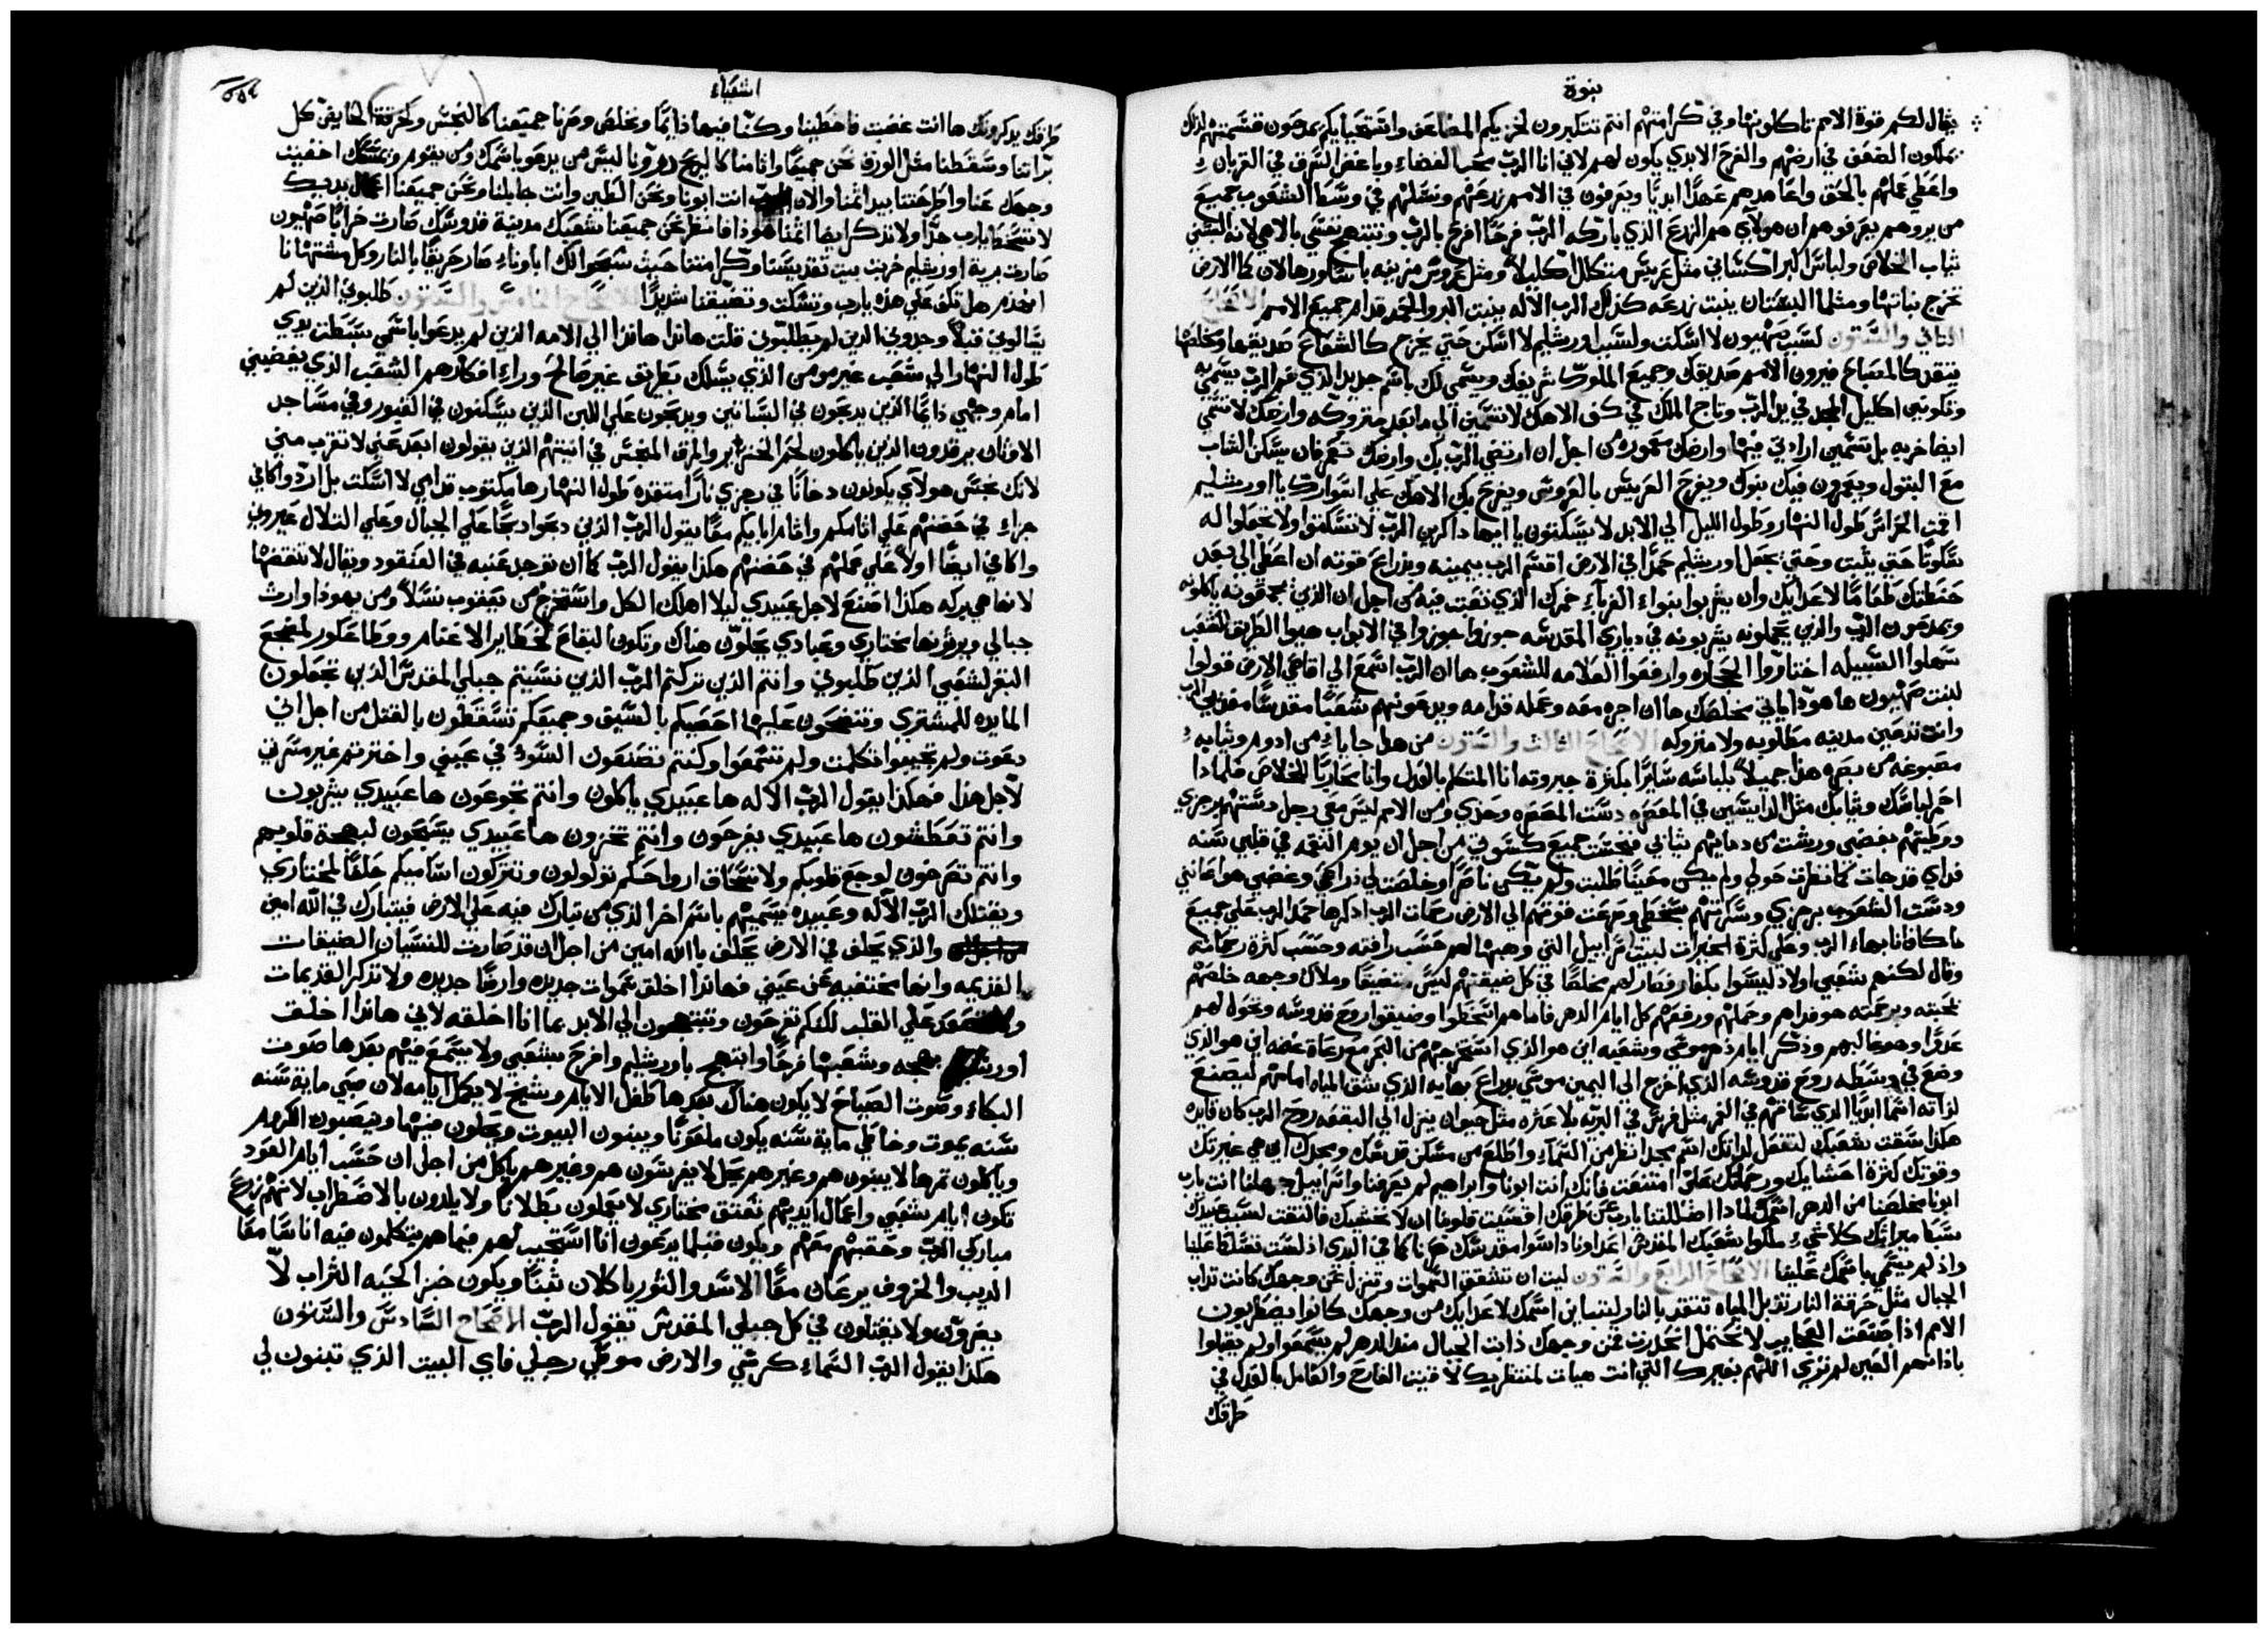 نبوة
يقال لكم قوة الامم تاكلونها وفي كرامتهم انتم تتكبرون لخزيكم المضاعف واستحيايكم يمدحون قسمتهم لذلك
يملكون الضعف في ارضهم والفرح الابدي يكون لهم لاني انا الرب محب القضاء وباغض السرقه في القربان
واعطي عملهم بالحق واعاهدهم عهدا ابديا ويعرفون في الامم زرعهم ونسلهم في وسط الشعوب جميع
من يروهم يعرفوهم ان هولاي هم الزرع الذي باركه الرب فرحا افرح بالرب وتبتهج نفسي بالاهي لانه البسني
ثياب الخلاص ولباس البر اكساني مثل عريس متكلل اكليلا ومثل عروس مزينه باساورها لان كما الارض
تخرج نباتها ومثلما البستان ينبت زرعه كذلك الرب الاله ينبت البر والحمد قدام جميع الامم الاصحاح
الثاني والستون لسبب صهيون لا اسكت ولسبب اورشليم لا اسكن حتي يخرج كالشعاع صديقها ومخلصها
يتقد كالمصباح فيرون الامم صديقك وجميع الملوك شريفك ويسمي لك باسم جديد الذي فم الرب يسميه
وتكوني اكليل المجد في يد الرب وتاج الملك في كف الاهك لا تسمين الي ما بعد متروكه وارضك لا تسمي
ايضا خربه بل تسمين ارادتي فيها وارضك معموره من اجل ان ارتضي الرب بك وارضك تعمر فان يسكن الشاب
مع البتول ويعمرون فيك بنوك ويفرح العريس بالعروس ويفرح بك الاهك علي اسوارك يا اورشليم
اقمت الحراس طول النهار وطول الليل الي الابد لا يسكتون يا ايها ذاكرين الرب لا تسكتوا ولا تجعلوا له
سكوتا حتي يثبت وحتي يجعل اورشليم حمدا في الارض اقسم الرب بيمينه وبذراع قوته ان اعطي الي بعد
حنطتك طعاما لاعدايك وان يشربوا بنواء الغرباء خمرك الذي تعبت فيه من اجل ان الذين يجمعونه ياكلونه
ويمدحون الرب والذين يحملونه يشربونه في دياري المقدسه جوزوا جوزوا في الابواب هيوا الطريق للشعب
سهلوا السبيله اختاروا الحجاره وارفعوا العلامه للشعوب ها ان الرب اسمع الي اقاصي الارض قولوا
لبنت صهيون ها هوذا ياتي مخلصك ها ان اجره معه وعمله قدامه ويدعونهم شعبا مقدسا مفديي الرب
وانت تدعين مدينه مطلوبه ولا متروكه الاصحاح الثالث والستون من هذا جاياء من ادوم وثيابه
مصبوغه من بصره هذا جميلا بلباسه سايرا بكثرة جبروته انا المتكلم بالعدل وانا محاربا للخلاص فلماذا
احمر لباسك وثيابك مثل الدايسين في المعصره دست المعصره وحدي ومن الامم ليس معي رجل دستهم برجزي
ووطيتهم بغضبي ورشت من دمايهم ثيابي فنجست جميع كسوتي من اجل ان يوم النقمه في قلبي سنه
فداي قد جات كما نظرت حولي ولم يكن معينا طلبت ولم يكن ناصرا وخلصت لي ذراعي وغضبي هو اعانني
ودست الشعوب برجزي وسكرتهم بسخطي وصرعت قوتهم الي الارض رحمات الرب اذكرها حمد الرب علي جميع
ما كافانا بهاء الرب وعلي كثرة الخيرات لبيت اسراييل التي وهبها لهم حسب رافته وحسب كثرة رحماته
وقال لكنهم شعبي اولاد ليسوا بكفار فصار لهم مخلصا في كل ضيقتهم ليس متضيقا وملاك وجهه خلصهم
بمحبته وبرحمته هو فداهم وحملهم ورفعهم كل ايام الدهر فاما هم اسخطوا وضيقوا روح قدوسه وتحول لهم
عدوا وهو غالبهم وذكر ايام دهر موسي وشعبه اين هو الذي استخرجهم من البحر مع رعاة غنمه اين هو الذي
وضع في وسطه روح قدوسه الذي اخرج الي اليمين موسي بذراع بهايه الذي شق المياه امامهم ليصنع
لذاته اسما ابديا الذي ساقهم في الغمر مثل فرس في البريه بلا عثره مثل حيوان ينزل الي البقعه روح الرب كان قايده
هكذا سقت شعبك لتفعل لذاتك اسم مجد انظر من السماء واطلع من مسكن قدسك ومجدك اين هي غيرتك
وقوتك كثرة احشايك ورحمتك علي امتنعت فانك انت ابونا وابراهيم لم يعرفنا واسراييل جهلنا انت يارب
ابونا مخلصنا من الدهر اسمك لماذا اضللتنا يارب عن طرقك اقسيت قلوبنا ان لا نخشيك فالتفت لسبب عبيدك
سبط ميراثك كلا شي ملكوا شعبك المقدس اعداونا داسوا مقدسك صرنا كما في البدي اذ لست تسلط علينا
واذ لم يسمي باسمك علينا الاصحاح الرابع والستون ليت ان تنشقق السموات وتنزل من وجهك كانت تذاب
الجبال مثل حرقة النار تذبل المياه تتقد بالنار ليتبان اسمك لاعدايك من وجهك كانوا يضطربون
الامم اذا صنعت العجايب لا نحتمل انحدرت من وجهك ذابت الجبال منذ الدهر لم يسمعوا ولم يقبلوا
باذانهم العين لم تري اللهم بغيرك التي انت هيات لمنتظريك لاقيت الفارح والعامل بالعدل في
طرقك
اشعياء
طرقك يذكرونك ها انت غضبت فاخطينا وكنا فيها دايما ونخلص وصرنا جميعنا كالنجس وكخرقة الحايض كل
براتنا وسقطنا مثل الورق نحن جميعا واثامنا كالريح ذرونا ليس من يدعو باسمك ومن يقوم ويمسكك اخفيت
وجهك عنا واطرحتنا بيد اثمنا والان يارب انت ابونا ونحن الطين وانت جابلنا ونحن جميعنا اعمال يديك
لا تسخط يارب جدا ولا تذكر ايضا اثمنا هوذا فانظر نحن جميعنا شعبك مدينة قدوسك صارت خرابا صهيون
صارت بريه اورشليم خربت بيت تقديسنا وكرامتنا حيث سبحوا لك اباوناء صار حريقا بالنار وكل مشتهانا
انهدم هل تكف علي هذه يارب وتسكت وتضيقنا شديدا الاصحاح الخامس والستون طلبوني الذين لم
يسالوني قبلا وجدوني الذين لم يطلبوني قلت هانذا هانذا الي الامه الذين لم يدعوا باسمي بسطت يدي
طول النهار الي شعب غير مومن الذي يسلك بطريق غير صالح وراء افكارهم الشعب الذي يغضبني
امام وجهي دايما الذين يدبحون في البساتين ويدبحون علي اللبن الذين يسكنون في القبور وفي مساجد
الاوثان يرقدون الذين ياكلون لحم الخنزير والمرق المنجس في انيتهم الذين يقولون ابعد عني لا تقرب مني
لانك نجس هولاي يكونون دخانا في رجزي نارا متقده طول النهار ها مكتوب قدامي لا اسكت بل ارد واكافي
جزاء في حضنهم علي اثامكم واثام اباييكم معا يقول الرب الذين دبحوا دبحا علي الجبال وعلي التلال عيروني
واكافي ايضا اولا علي عملهم في حضنهم هكذا يقول الرب كما ان توجد عنبه في العنقود ويقال لا تنقضها
لانها هي بركه هكذا اصنع لاجل عبيدي ليلا اهلك الكل واستخرج من يعقوب نسلا ومن يهوذا وارث
جبالي ويرثونها مختاري وعبادي يحلون هناك وتكون البقاع لحظاير الاغنام ووطا عكور لمضجع
البقر لشعبي الذين طلبوني وانتم الذين تركتم الرب الذين نسيتم جبلي المقدس الذين تجعلون
المايده للمشتري وتنضحون عليها احصيكم بالسيق وجميعكم تسقطون بالقتل من اجل اني
دعوت ولم تجيبوا تكلمت ولم تسمعوا وكنتم تصنعون السوء في عيني واخترتم غير مسرتي
لاجل هذا فهكذا يقول الرب الاله ها عبيدي ياكلون وانتم تجوعون ها عبيدي يشربون
وانتم تعطشون ها عبيدي يفرحون وانتم تخزون ها عبيدي يسبحون لبهجة قلوبهم
وانتم تصرخون لوجع قلوبكم ولانسحاق ارواحكم تولولون وتتركون اساميكم حلفا لمختاري
ويقتلك الرب الاله وعبيده يسميهم باسم اخر الذي من تبارك فيه علي الارض فيتبارك في الله امين
والذي يحلف في الارض يحلف بالله امين من اجل ان قد صارت للنسيان الضيقات
القديمه وانها مختفيه عن عيني فهانذا اخلق سموات جديده وارضا جديده ولا تذكر القديمات
ولا تصعد علي القلب لكنكم تفرحون وتبتهجون الي الابد بما انا اخلقه لاني هانذا اخلقت
اورشليم بهجه وشعبها فرحا وابتهج باورشليم وافرح بشعبي ولا يسمع فيهم بعدها صوت
البكاء وصوت الصياح لا يكون هناك بعدها طفل الايام وشيخ لا يكمل ايامه لان صبي ماية سنه
سنه يموت وخاطي ماية سنه يكون ملعونا ويبنون البيوت ويحلون فيها وينصبون الكروم
وياكلون ثمرها لا يبنون هم وغيرهم يحل لا يغرسون هم وغيرهم ياكل من اجل ان حسب ايام العود
تكون ايام شعبي واعمال ايديهم تعتق مختاري لا يعملون بطلانا ولا يلدون بالاضطراب لانهم زرع
مباركي الرب وحقبهم معهم ويكون قبلما يدعون انا استجيب لهم فيما هم يتكلمون فيه انا سامعا
الديب والخروف يرعيان معا الاسد والثور ياكلان تبنا ويكون خبز الحيه التراب لا
يضرون ولا يقتلون في كل جبلي المقدس يقول الرب الاصحاح السادس والستون
هكذا يقول الرب السماء كرسي والارض موطي رجلي فاي البيت الذي تبنون لي